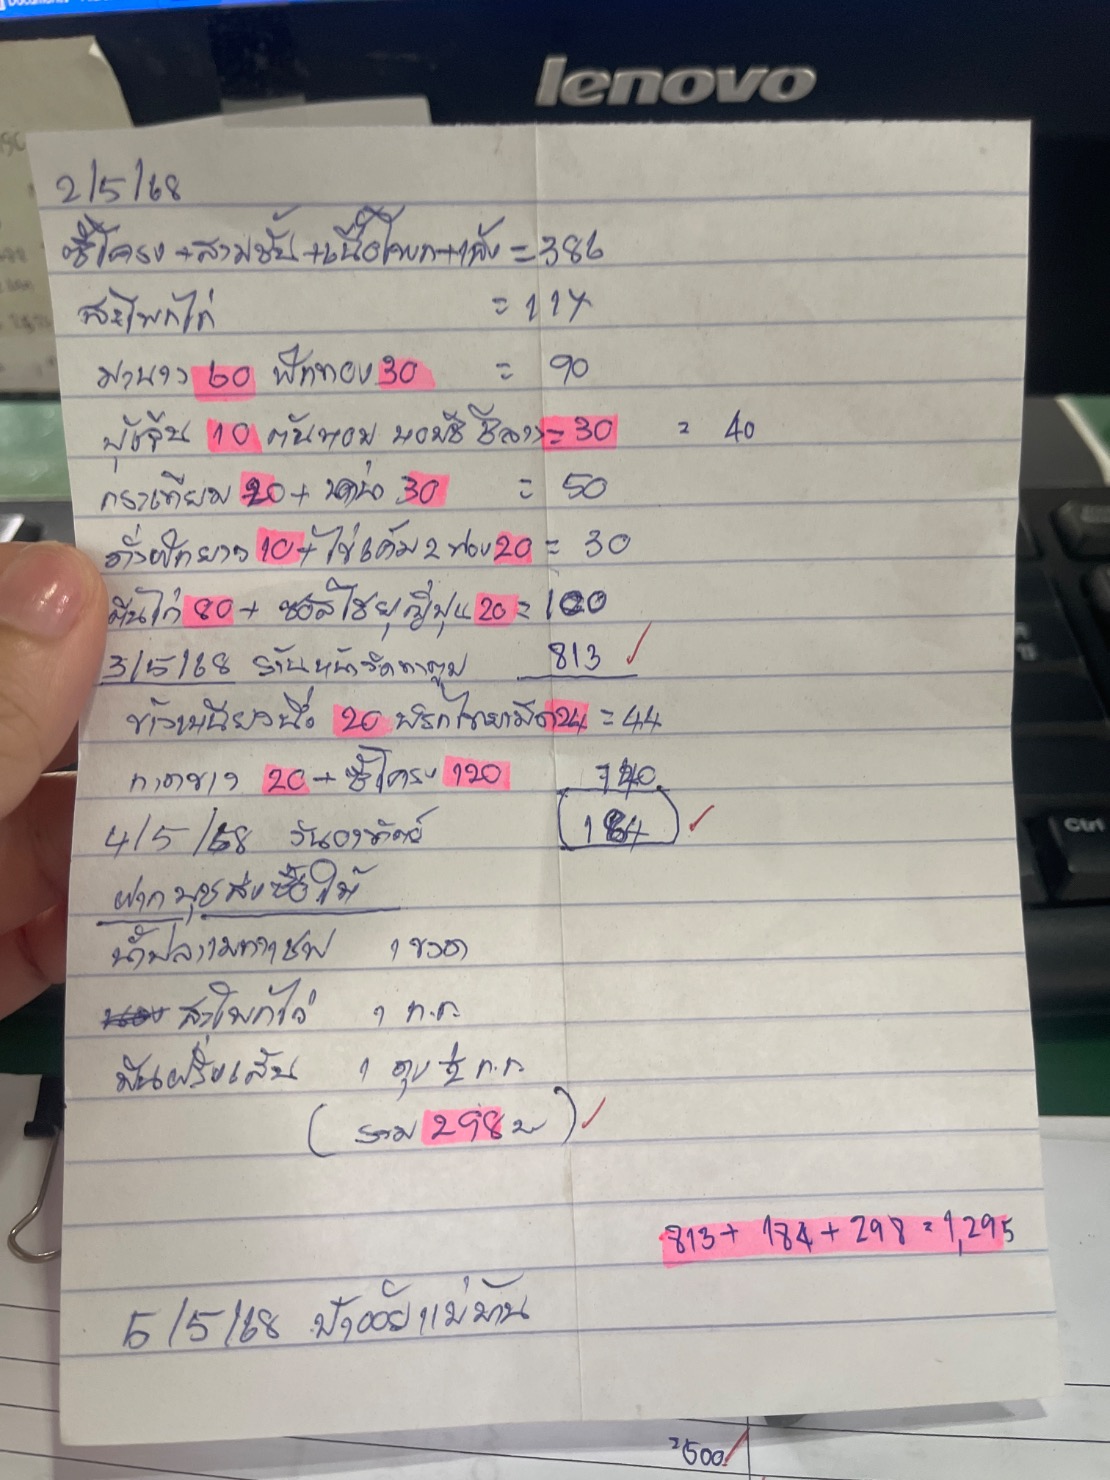 lenovo
2/5/68
ซี่โครง+สามชั้น+เนื้อโพก+ = 386
สะโพกไก่ = 117
มะนาว 60 ฟักทอง 30 = 90
ผู้จีน 10 ต้นหอม ชีลาว = 30 = 40
กระเทียม 20 + 30 = 50
ถั่วฝักยาว 10 + ไข่เค็ม 2 ฟอง 20 = 30
ตีนไก่ 80 + ซอสโชยุญี่ปุ่น 20 = 100
3/5/68 ร้านหน้าวัดตาตูม 813 ✓
ข้าวเหนียวนึ่ง 20 พริกไทยเม็ด 24 = 44
20 + ซี่โครง 120 140
4/5/68 วันอาทิตย์ 184 ✓
ฝากนุชสั่งซื้อให้
น้ำปลาเมกาเชฟ 1 ขวด
สะโพกไก่ 1 ก.ก.
มันฝรั่งเส้น 1 ถุง ½ ก.ก
(รวม 298 บ) ✓
813 + 184 + 298 = 1,295
5/5/68 ป้าอ้อยแม่บ้าน
2500
Ctrl